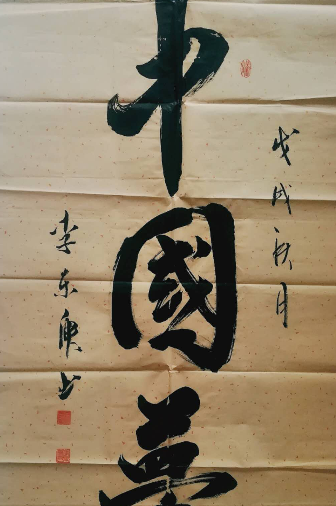 戊戌秋月
中國夢
李东